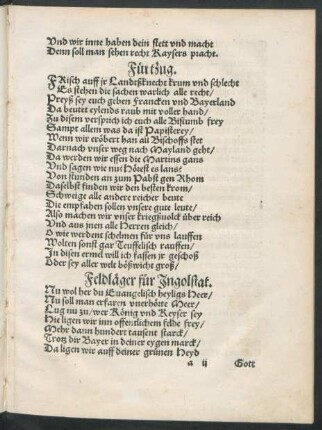 Vnd wir inne haben dein stett vnd macht
Denn soll man sehen recht Kaysers pracht.
Fürtzug.
FRisch auff jr Landtßknecht krum vnd schlecht
Es stehen die sachen warlich alle recht/
Preyß sey euch geben Francken vnd Bayerland
Da beutet eylends raub mit voller hand/
Zu disem versprich ich euch alle Bistumb frey
Sampt allem was da ist Papisterey/
Wenn wir eröbert han all Bischoffs stet
Darnach vnser weg nach Mayland geht/
Da werden wir essen die Martins gans
Vnd sagen wie nu: Hörest es lans:
Von stunden an zum Pabst gen Rhom
Daselbst finden wir den besten krom/
Schweige alle andere reicher beute
Die empfahen sollen vnsere gute leute/
Also machen wir vnser kriegßuolck über reich
Vnd aus jnen alle Herren gleich/
O wie werdent schelmen für vns lauffen
Wolten sonst gar Teuffelisch rauffen/
In disen ermel will ich fassen jr geschoß
Oder sey aller welt bößwicht groß/
Feldläger für Ingolstat.
Nu wol her du Euangelisch heyligs Heer/
Nu soll man erfaren vnerhörte Meer/
Lug nu zu/wer König vnd Keyser sey
Hie ligen wir inn offentlichem felde frey/
Mehr dann hundert tausent starck/
Trotz dir Bayer in deiner eygen marck/
Da ligen wir auff deiner grünen Heyd
a ij Gott